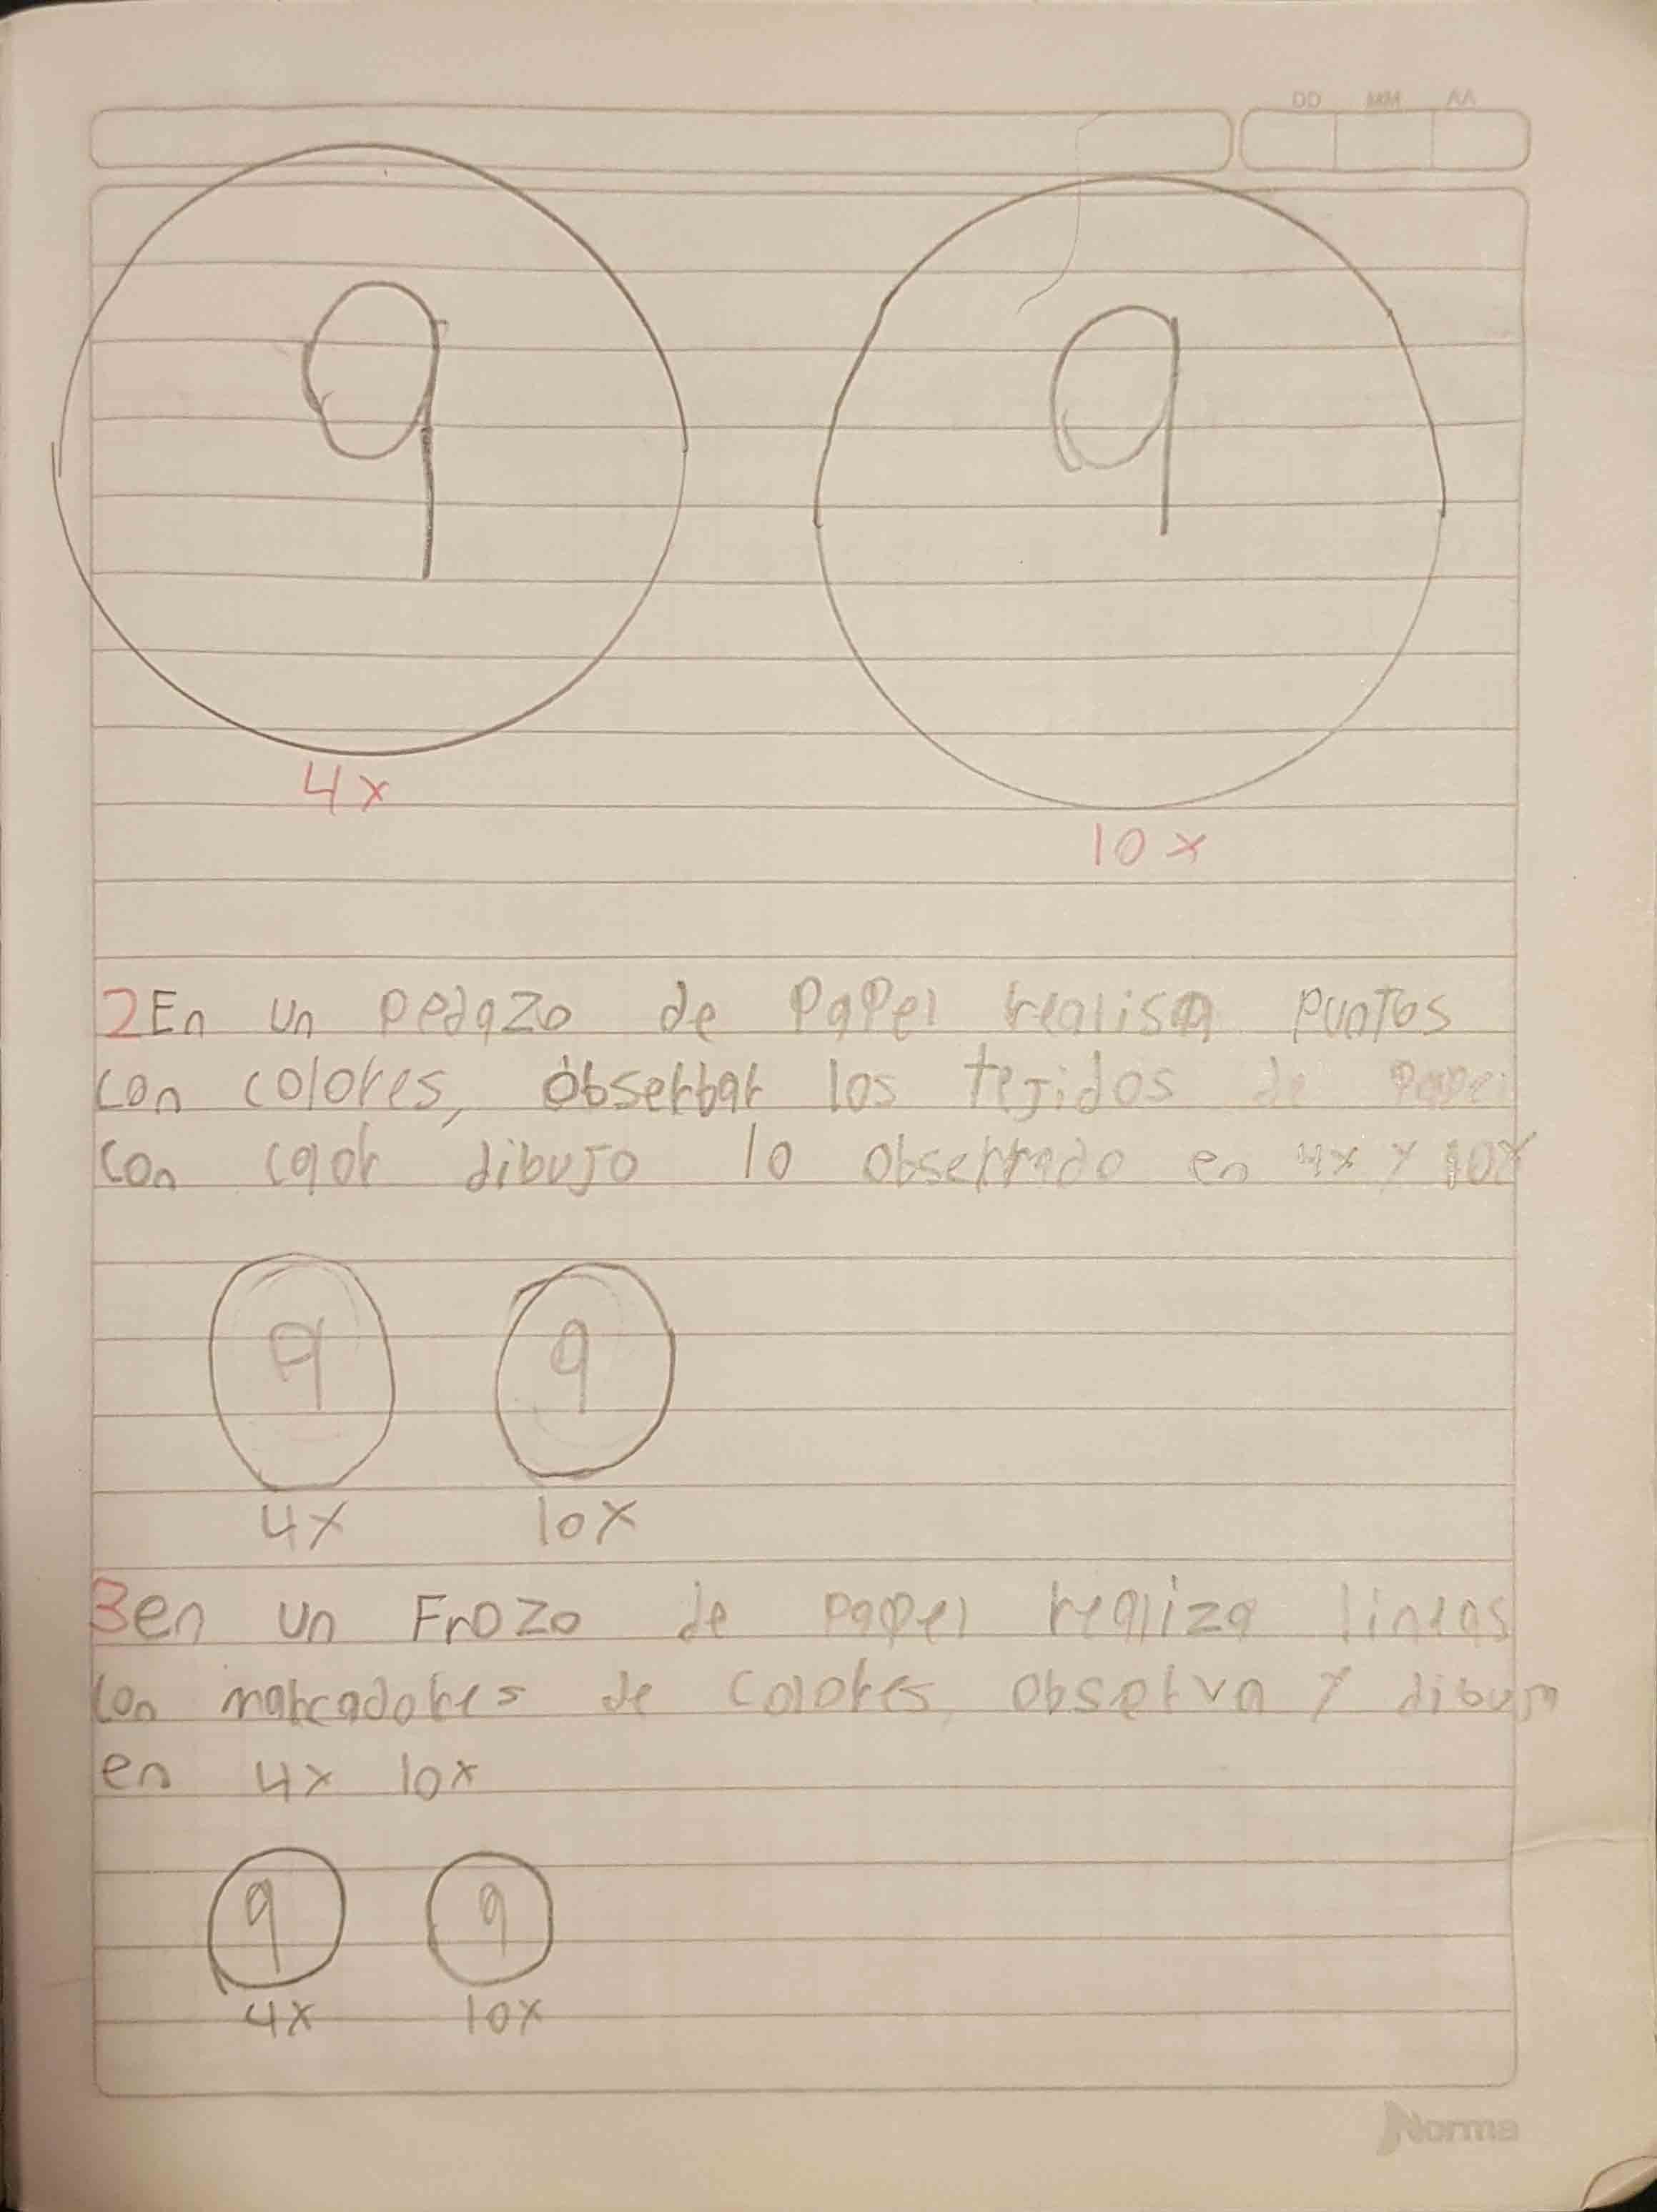 DD MM AA
9 9
4x
10x
2 En un pedazo de papel realisa puntos
con colores, obserbar los tejidos de papel
con color dibujo lo observado en 4x y 10x
9 9
4x 10x
3 en un Frozo de papel realiza lineas
con marcadores de colores, observa y dibuja
en 4x 10x
9 9
4x 10x
Norma